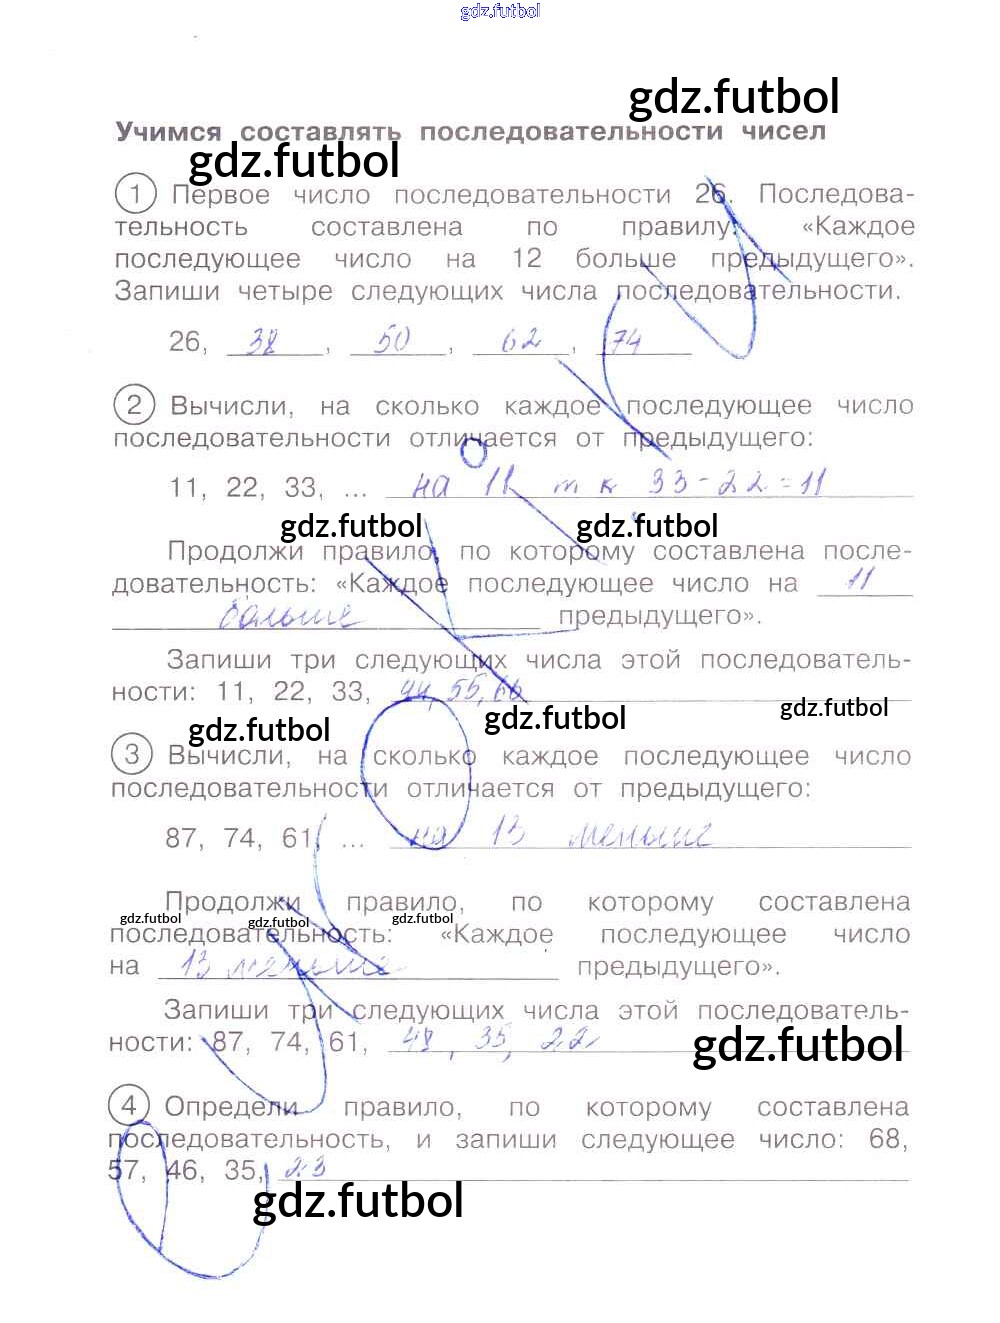 gdz.futbol
gdz.futbol
Учимся составлять последовательности чисел
gdz.futbol
1 Первое число последовательности 26. Последова-
тельность составлена по правилу: «Каждое
последующее число на 12 больше предыдущего».
Запиши четыре следующих числа последовательности.
26, 38, 50, 62, 74
2 Вычисли, на сколько каждое последующее число
последовательности отличается от предыдущего:
11, 22, 33, ... на 11 т к 33-22=11
gdz.futbol gdz.futbol
Продолжи правило, по которому составлена после-
довательность: «Каждое последующее число на 11
больше предыдущего».
Запиши три следующих числа этой последователь-
ности: 11, 22, 33, 44, 55, 66
gdz.futbol gdz.futbol gdz.futbol
3 Вычисли, на сколько каждое последующее число
последовательности отличается от предыдущего:
87, 74, 61, ... на 13 меньше
Продолжи правило, по которому составлена
gdz.futbol gdz.futbol gdz.futbol
последовательность: «Каждое последующее число
на 13 меньше предыдущего».
Запиши три следующих числа этой последователь-
ности: 87, 74, 61, 48, 35, 22
gdz.futbol
4 Определи правило, по которому составлена
последовательность, и запиши следующее число: 68,
57, 46, 35, 23
gdz.futbol